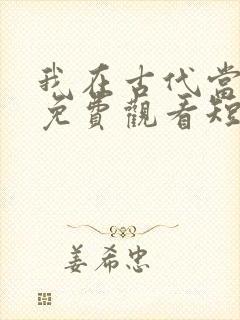 我在古代當
免費觀看短
姜希忠